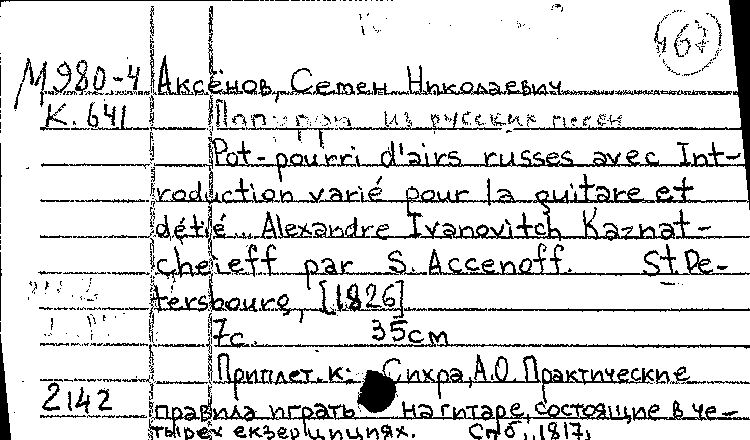 467
М980-4 Аксёнов, Семен Николаевич
К. 641 Попурри из русских песен
Pot-pourri d'airs russes avec Int-
roduction varié pour la guitare et
détié... Alexandre Ivanovitch Kaznat-
cheieff par S. Accenoff. St. Pe-
tersbourg, [1826]
7с. 35см
Приплет. к: Сихра, А.О. Практические
2142 правила играть на гитаре, состоящие в че-
тырех екзерцициях. Спб., 1817,